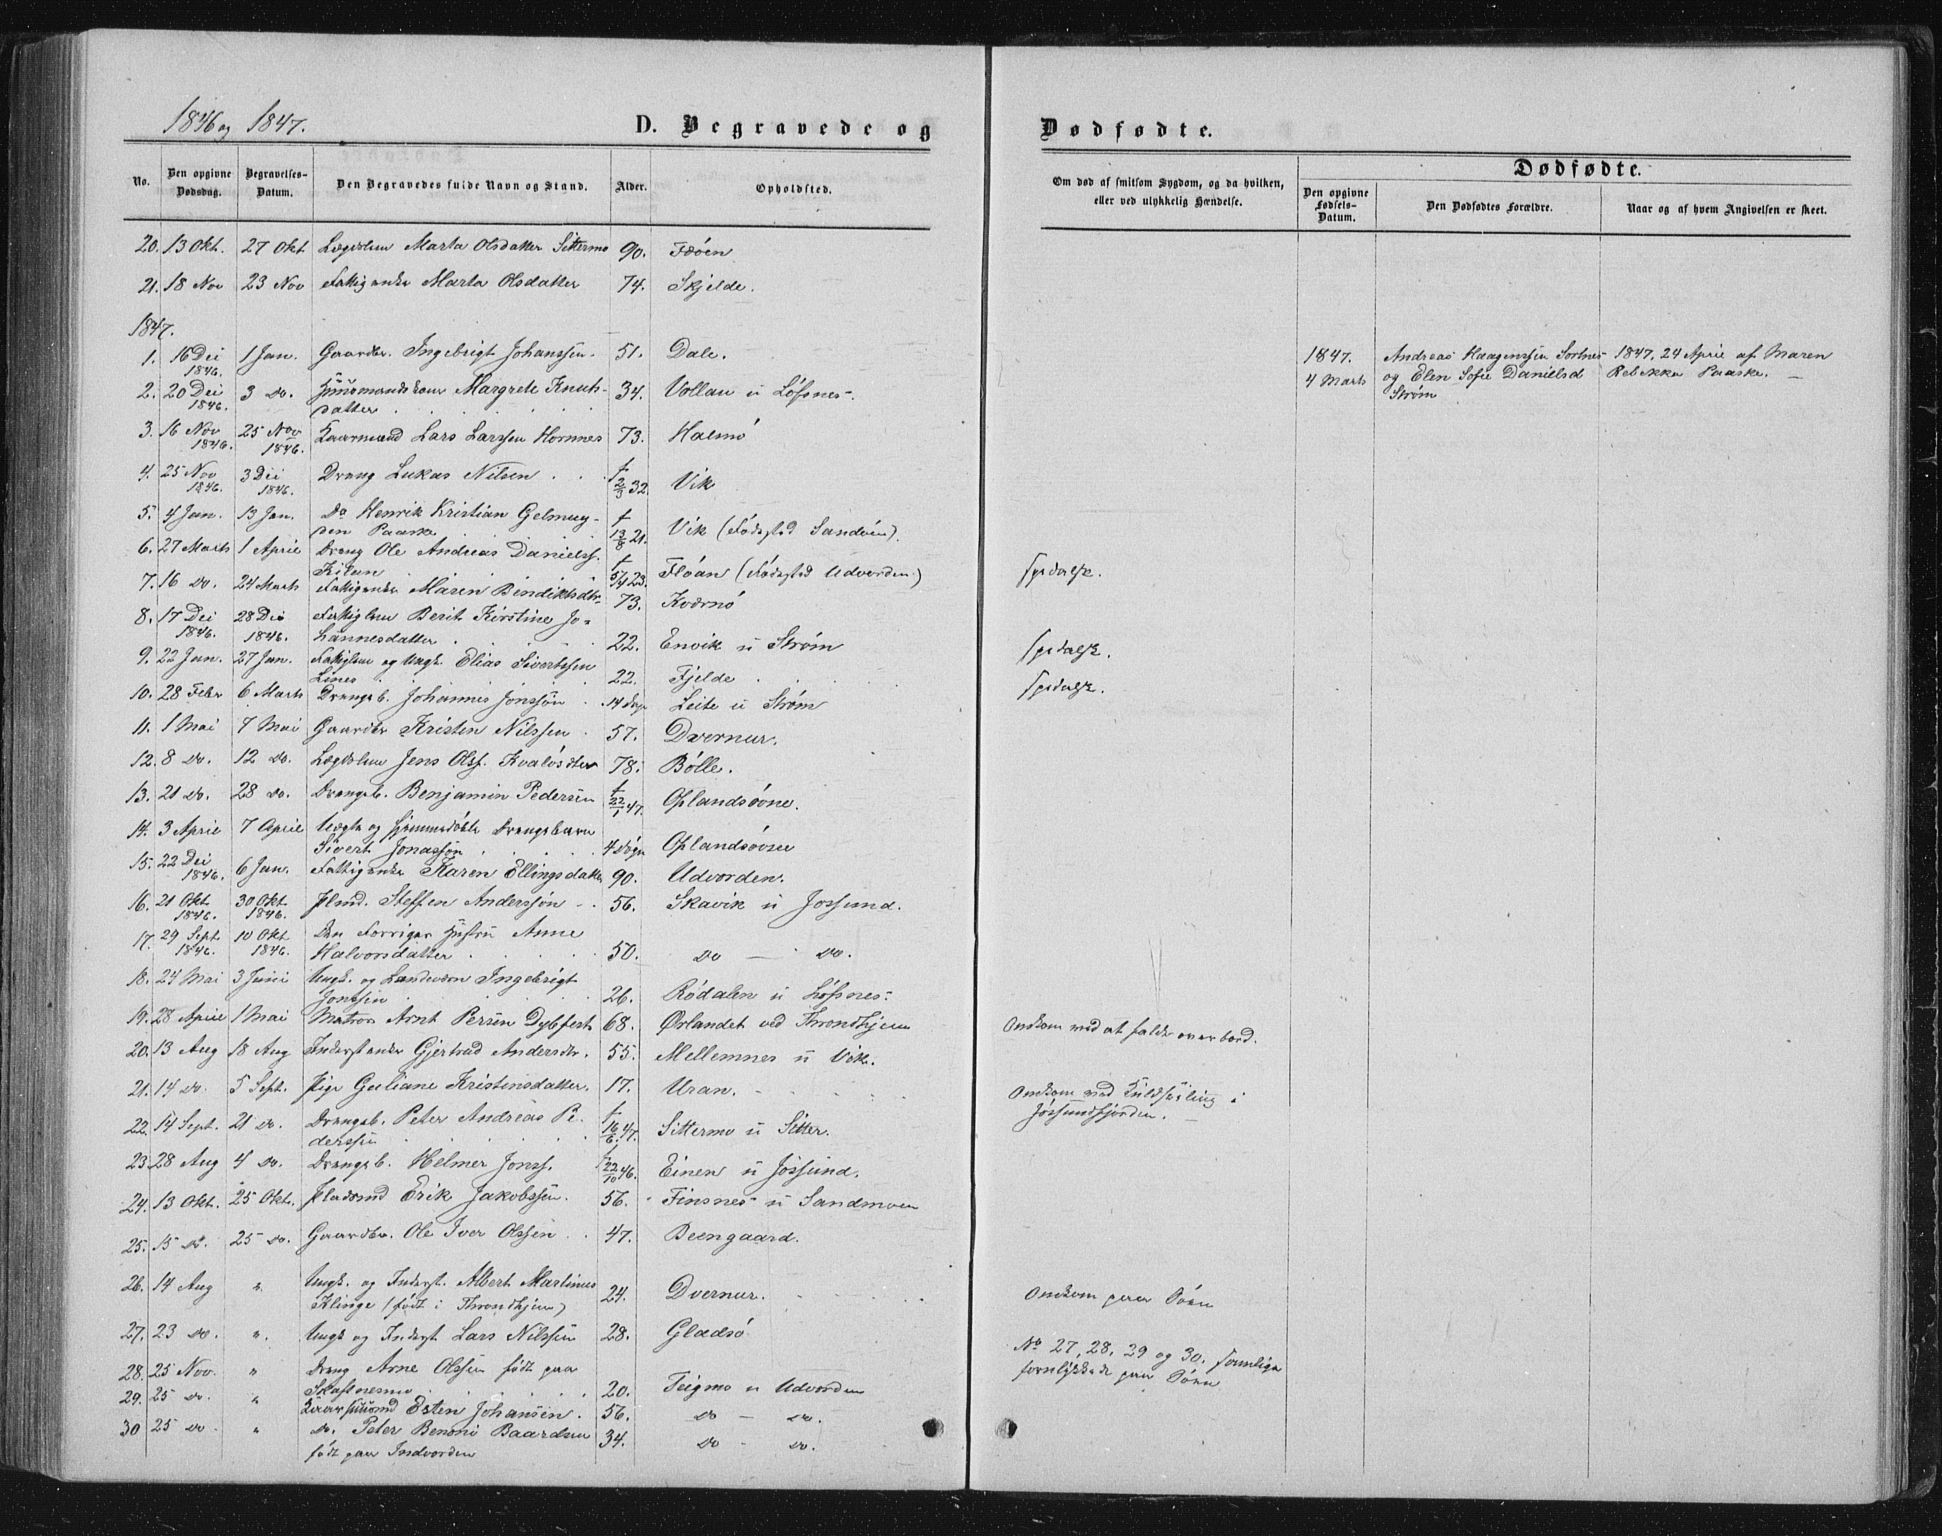 1846 og 1847.
D. Begravede og
Dødfødte.
No.
Den opgivne Dødsdag.
Begravelses-Datum.
Den Begravedes fulde Navn og Stand.
Alder.
Opholdsted.
Om død af smitsom Sygdom, og da hvilken,
eller ved ulykkelig Hændelse.
Dødfødte.
Den opgivne Fødsels-Datum.
Den Dødfødtes Forældre.
Naar og af hvem Angivelsen er skeet.
20. 13 Okt. 27 Okt Lægdslem Marta Olsdatter Sittermo 90. Fæøen
21. 18 Nov 23 Nov Fattigenke Marta Olsdatter 74. Skjelde.
1847.
1. 16 Dei 1846. 1 Jan. Gaardbr. Ingebrigt Johanssen. 51. Dale.
1847. Andreas Haagenssen Sortnes 1847, 24 April af Maren
2. 20 Dei 1846. 3 do. Huusmandskone Margrete Knuts- 34. Vollan u Løfsnes.
4 Marts og Elen Sofie Danielsd Rebekka Paaske. —
datter
Strøm
3. 16 Nov 1846. 25 Nov 1846. Kaarmand Lars Larssen Hornnes 73. Halmø
4. 25 Nov 1846. 3 Dei 1846. Dreng Lukas Nilsen f 2/3 32. Vik
5. 4 Jan. 13 Jan. Do Henrik Kristian Gelmuy-
den Paaske f 13/8 21. Vik (Fødested Sandøen).
6. 27 Marts 1 April Dreng Ole Andreas Danielss.
f 5/4 23. Fløan (Fødested Udvorden) spedalsk.
7. 16 do. 24 Marts Fattigenke Maren Bendiktsdtr 73. Kværnø
8. 17 Dei 1846. 28 Dei 1846. Fattiglem Berit Kirstine Jo-
hannesdatter 22. Envik u Strøm spedalsk.
9. 22 Jan. 27 Jan. Fattiglem og Ungk. Elias Sivertssen
Lines 22. Fjelde spedalsk.
10. 28 Febr 6 Marts Drengeb. Johannes Jonssøn 14 Dage Leite u Strøm
11. 1 Mai 7 Mai Gaardbr Kristen Nilssen 57. Dværnur.
12. 8 do. 12 do. Lægdslem Jens Olss. Kvaløseter 78. Bølle.
13. 21 do. 28 do. Drengeb. Benjamin Pedersen f 22/1 47. Oplandsøvne.
14. 3 April 7 April Uægte og hjemmedøbte Drengebarn
Sivert Jonassøn 4 Døgn Oplandsøvne
15. 22 Dei 1846. 6 Jan. Fattigenke Karen Ellingsdatter 90. Udvorden.
16. 21 Okt 1846. 30 Okt. 1846. Plmd. Steffen Anderssøn 56. Skavik u Jossund.
17. 29 Sept 1846. 10 Okt 1846. Den Forriges Hustru Anne
Halvorsdatter 50. do — do.
18. 24 Mai 3 Juni Ungk. og Landværn Ingebrigt
Jonssen 26. Rødalen u Løfsnes.
19. 28 April 1 Mai Matros Arnt Persen Dybfest 68. Ørlandet ved Throndhjem Omkom ved at falde overbord.
20. 13 Aug 18 Aug Inderstenke Gjertrud Andersdtr. 55. Mellemnes u Vik.
21. 14 do. 5 Sept. Pige Guliane Kristensdatter. 17. Uran. Omkom ved Kuldseiling i
Jøssundfjorden.
22. 14 Sept. 21 do. Drengeb. Peter Andreas Pe-
derssen f 16/6 47. Sittermo u Sitter.
23. 28 Aug 4 do. Drengeb. Helmer Jonss. f 22/10 46. Einen u Jøssund.
24. 13 Okt. 25 Okt. Pladsmd Erik Jakobssen. 56. Finsnes u Sandmoen
25. 15 do. 25 do. Gaardbr. Ole Iver Olssen 47. Beengaard.
26. 14 Aug " Ungk. og Inderst. Albert Martinus
Klinge (født i Throndhjem) 24. Dvernur. Omkom paa Søen
27. 23 do. ". Ungk og Inderst Lars Nilssen 28. Gladsø
No 27, 28, 29 og 30. samlige
forulykkede paa Søen
28. 25 Nov. " Dreng Arne Olssen født paa
Skafnesmo 20. Teigmo u Udvorden
29. 25 do. " Esten Johansen. 56. do — do.
30 25 do. " do. Peter Benoni Baardsen 34. do — do.
født paa Indvorden